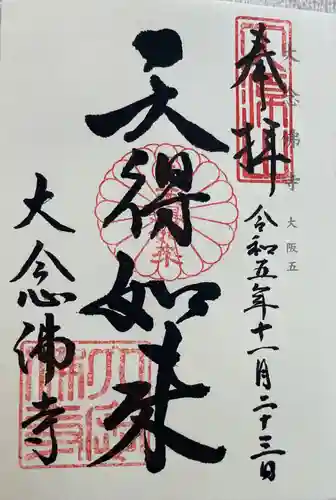 奉拝
大念佛寺
大阪五
令和五年十一月二十三日
天得如来
大念佛寺